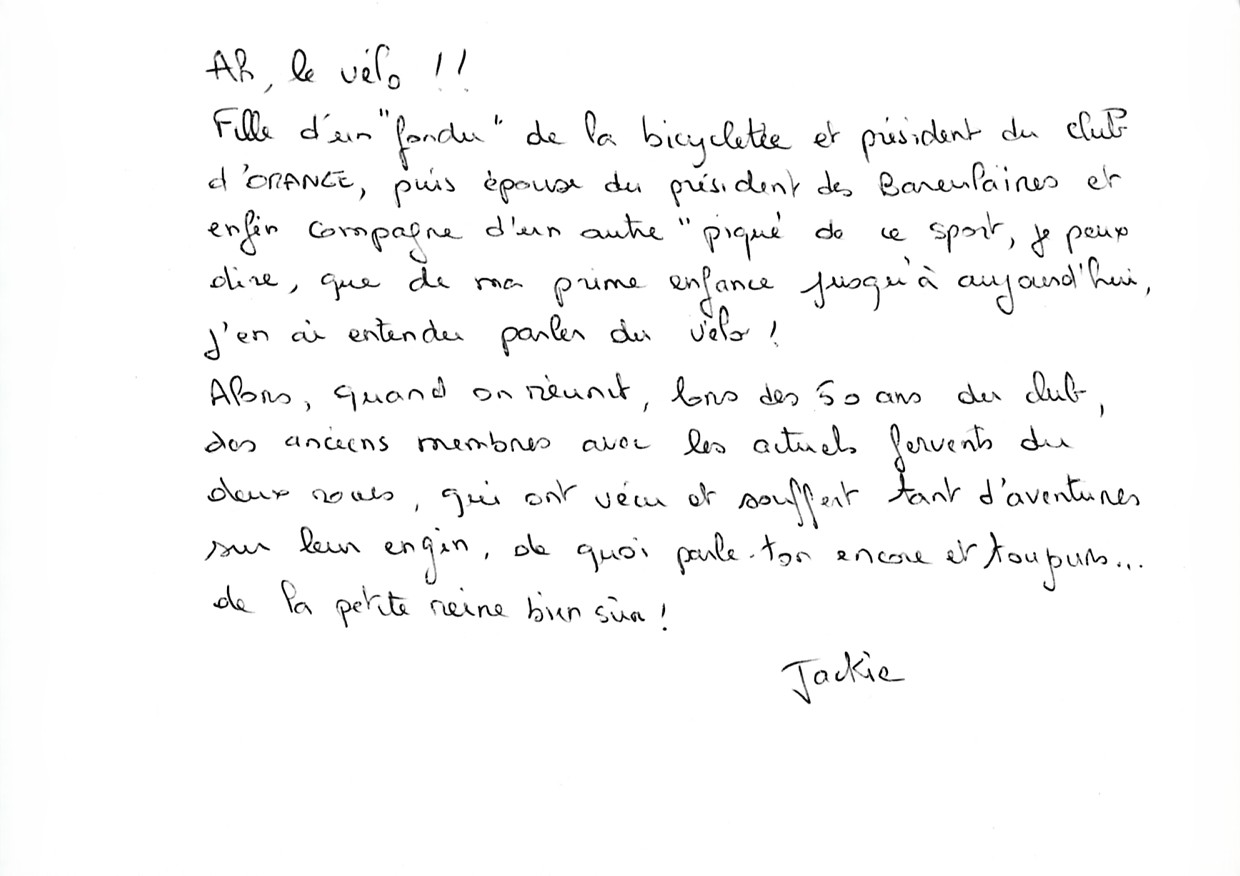 Ah, le vélo !!
Fille d'un "fondu" de la bicyclette et président du club
d'ORANGE, puis épouse du président des Bareulaires et
enfin compagne d'un autre "piqué de ce sport, je peux
dire, que de ma prime enfance jusqu'à aujourd'hui,
j'en ai entendu parler du vélo !
Alors, quand on réunit, lors des 50 ans du club,
des anciens membres avec les actuels fervents du
deux roues, qui ont vécu et souffert tant d'aventures
sur leur engin, de quoi parle-ton encore et toujours...
de la petite reine bien sûr !
Jackie